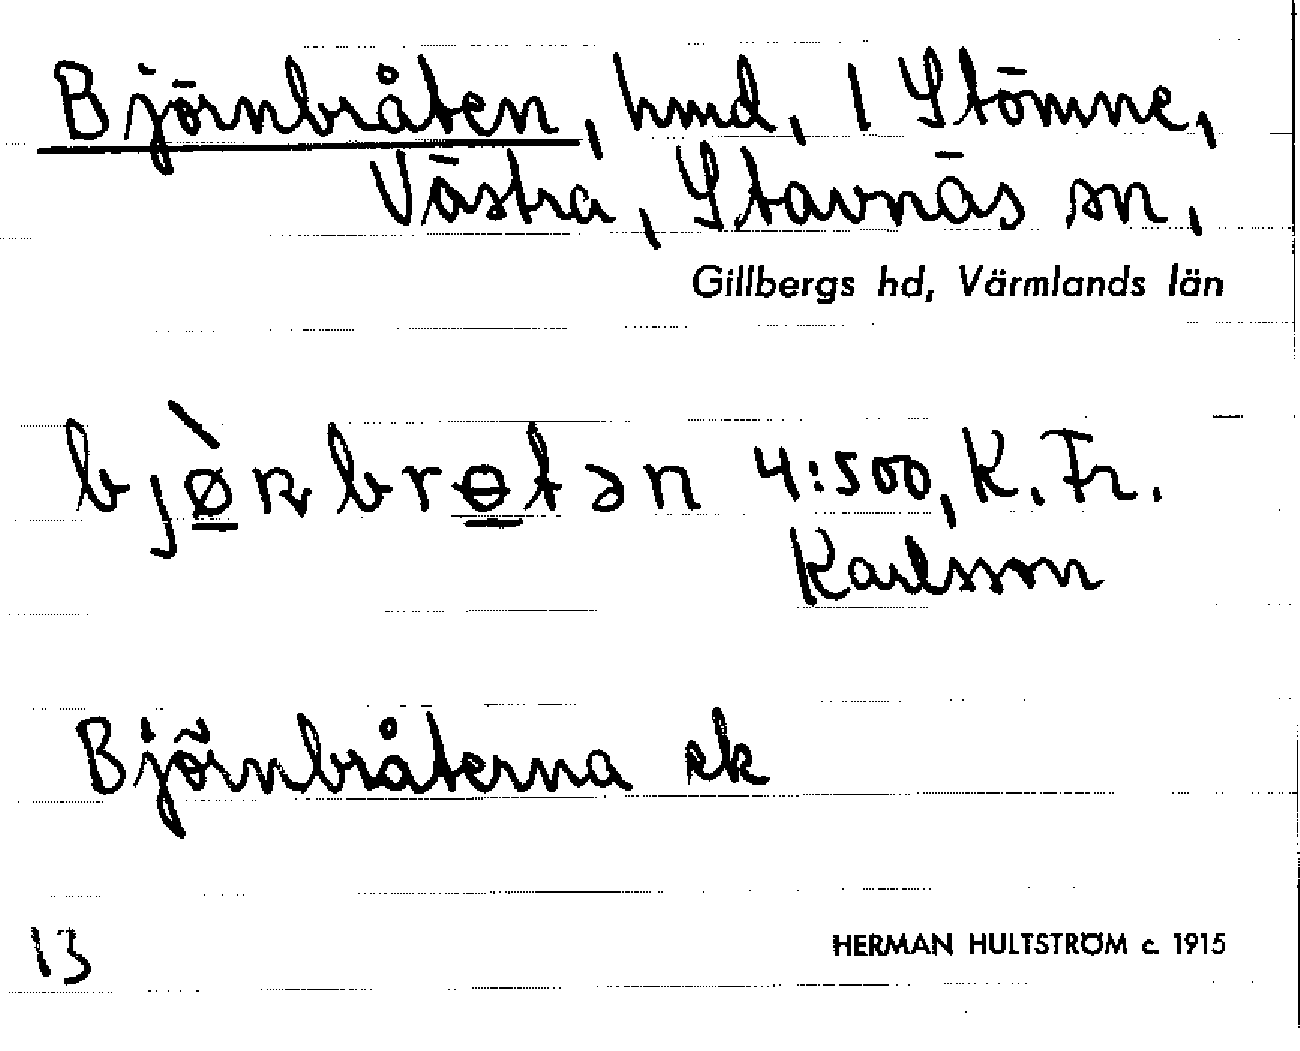 Björnbråten, hmd, 1 Stömne,
Västra, Stavnäs sn,
Gillbergs hd, Värmlands län
4:500, K. Fr.
Karlsson
Björnbråterna ek
13
HERMAN HULTSTRÖM c. 1915